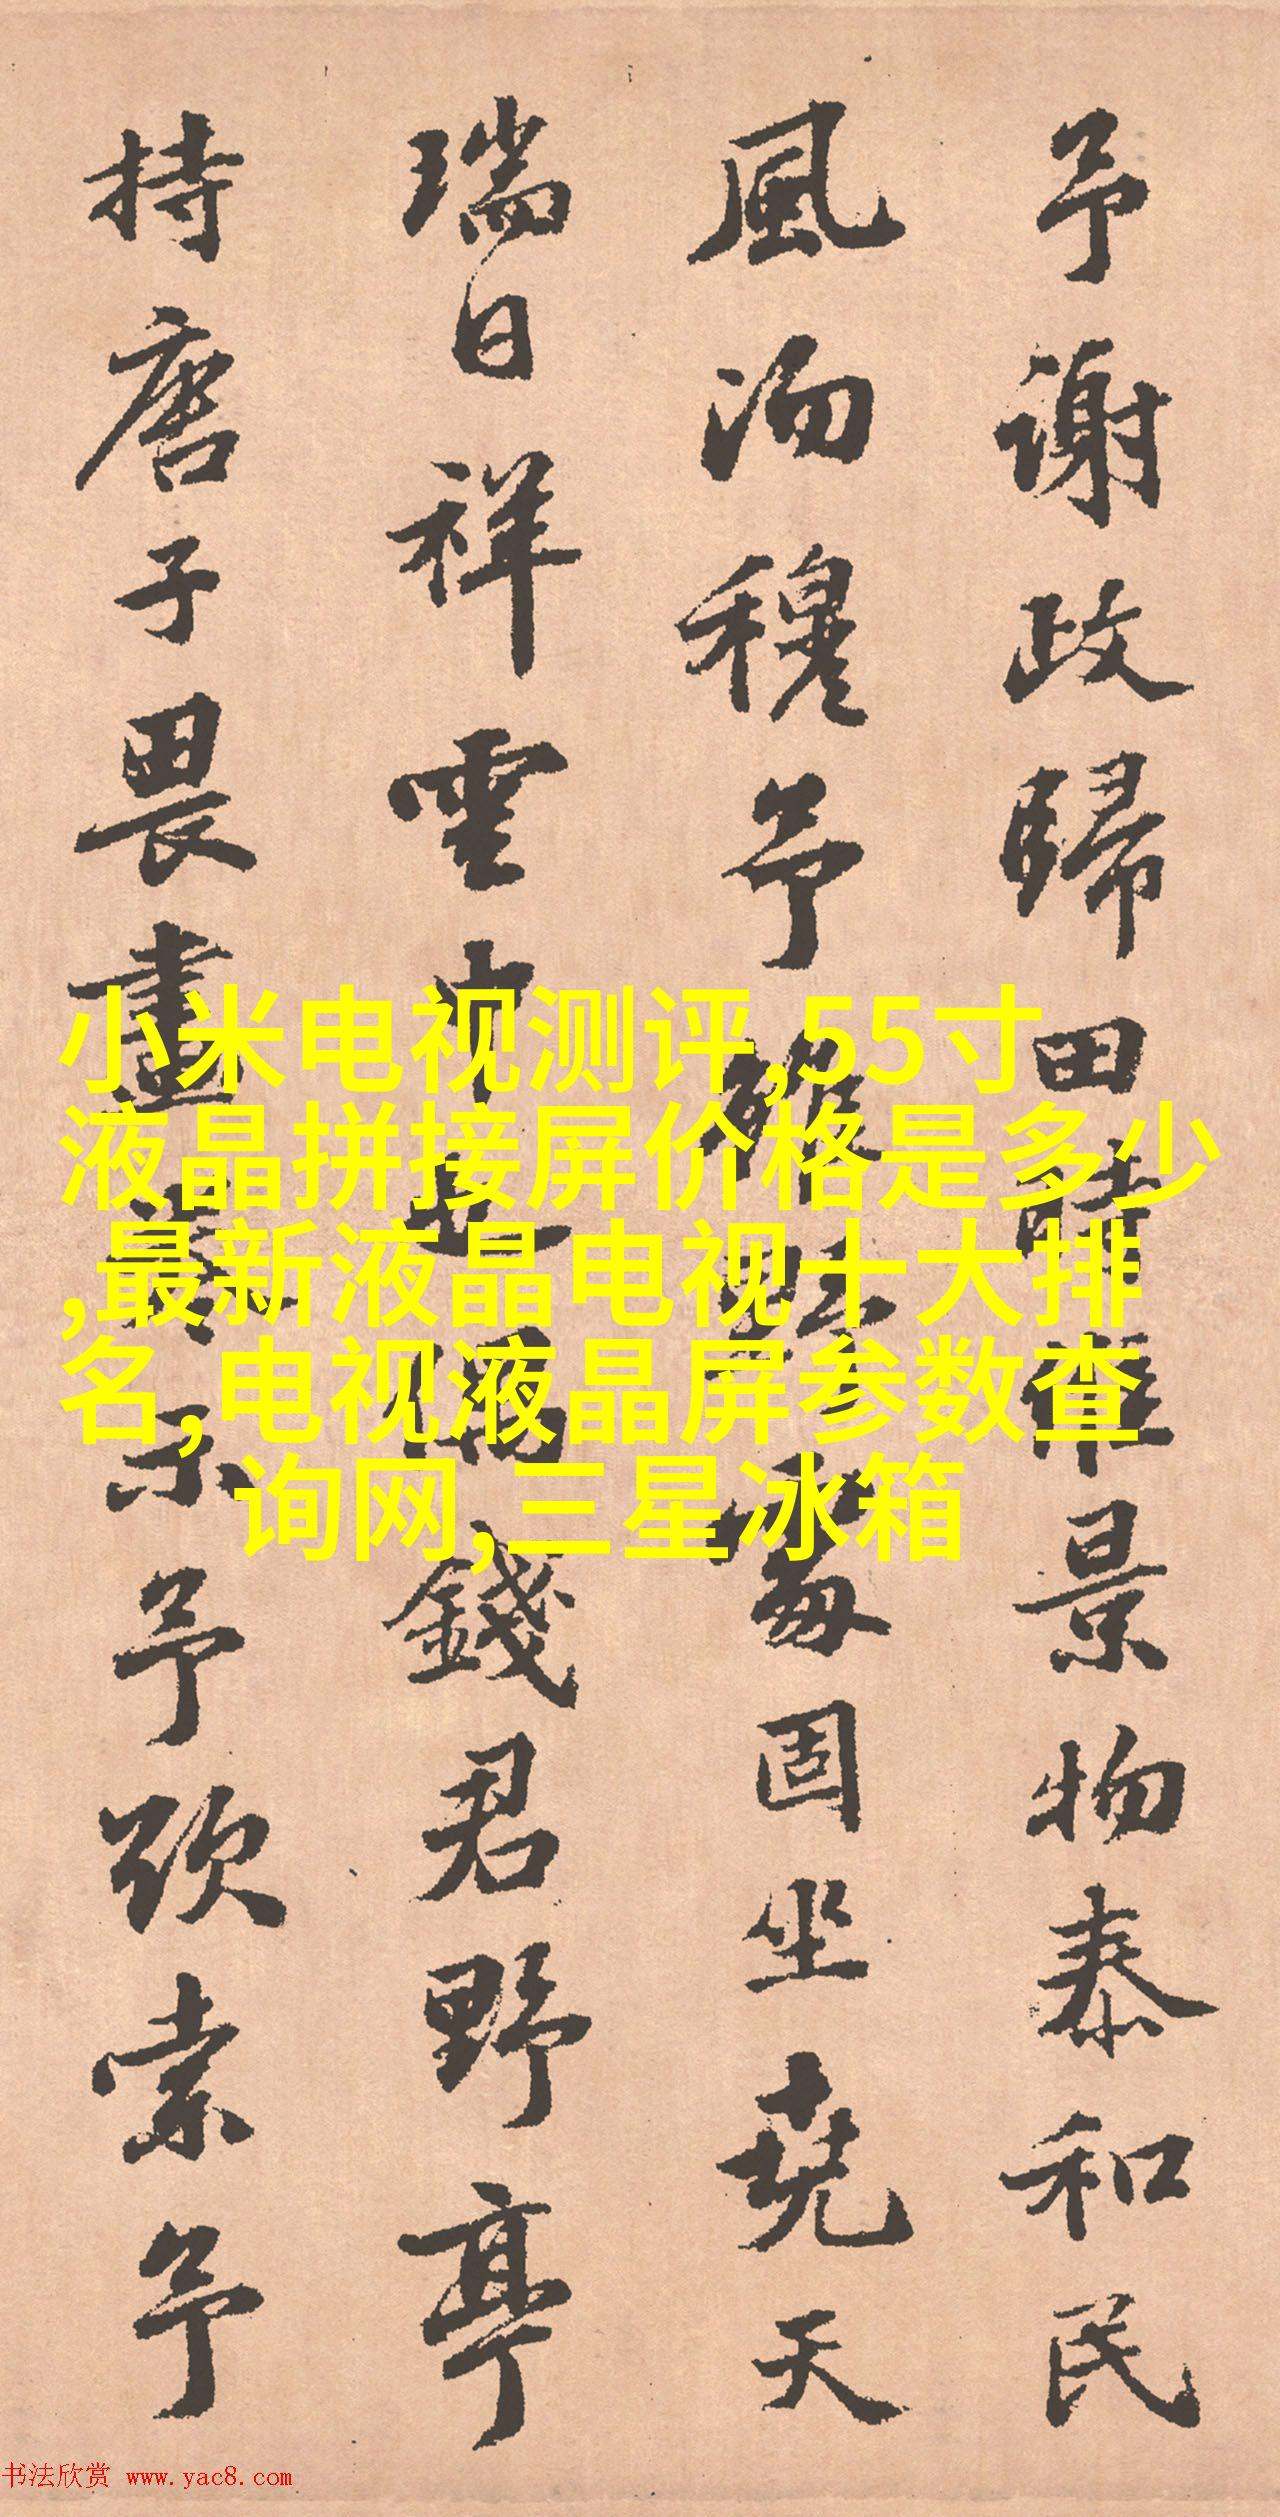 予谢政歸田時維景物泰和民
風沕穆予雖固坐堯天
瑞日祥雲中也偶錢君野亭
持唐子畏畫卷示予欲索予
小米电视测评,55寸
液晶拼接屏价格是多少
,最新液晶电视十大排
名,电视液晶屏参数查
询网,三星冰箱
书法欣赏 www.yac8.com